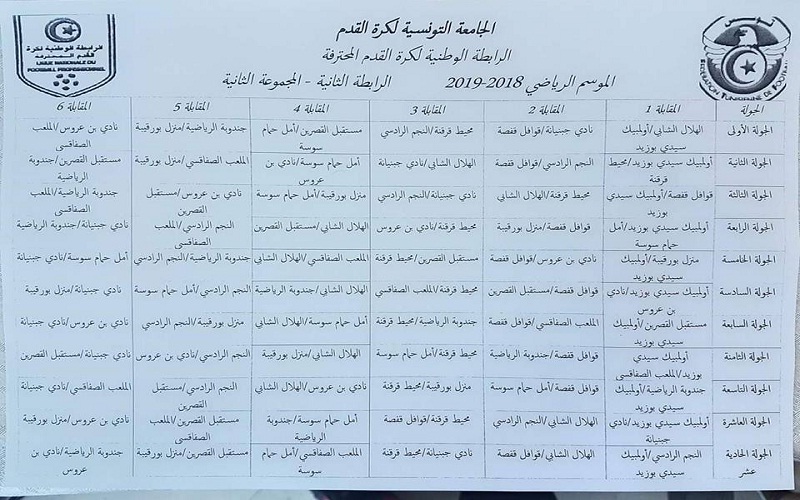 الجامعة التونسية لكرة القدم
الرابطة الوطنية لكرة القدم المحترفة
الموسم الرياضي 2018-2019 الرابطة الثانية - المجموعة الثانية
الرابطة الوطنية لكرة القدم المحترفة
LIGUE NATIONALE DU
FOOTBALL PROFESSIONNEL
تونس
FÉDÉRATION TUNISIENNE DE FOOTBALL
الجولة المقابلة 1 المقابلة 2 المقابلة 3 المقابلة 4 المقابلة 5 المقابلة 6
الجولة الأولى الهلال الشابي/أولمبيك نادي جبنيانة/قوافل قفصة محيط قرقنة/النجم الرادسي مستقبل القصرين/أمل حمام جندوبة الرياضية/منزل بورقيبة نادي بن عروس/الملعب
سيدي بوزيد سوسة الصفاقسي
الجولة الثانية أولمبيك سيدي بوزيد/محيط النجم الرادسي/قوافل قفصة الهلال الشابي/نادي جبنيانة أمل حمام سوسة/نادي بن الملعب الصفاقسي/منزل بورقيبة مستقبل القصرين/جندوبة
قرقنة عروس الرياضية
الجولة الثالثة قوافل قفصة/أولمبيك سيدي محيط قرقنة/الهلال الشابي نادي جبنيانة/النجم الرادسي منزل بورقيبة/أمل حمام سوسة نادي بن عروس/مستقبل جندوبة الرياضية/الملعب
بوزيد القصرين الصفاقسي
الجولة الرابعة أولمبيك سيدي بوزيد/أمل قوافل قفصة/منزل بورقيبة محيط قرقنة/نادي بن عروس الهلال الشابي/مستقبل القصرين النجم الرادسي/الملعب نادي جبنيانة/جندوبة الرياضية
حمام سوسة الصفاقسي
الجولة الخامسة منزل بورقيبة/أولمبيك نادي بن عروس/قوافل قفصة مستقبل القصرين/محيط قرقنة الملعب الصفاقسي/الهلال الشابي جندوبة الرياضية/النجم الرادسي أمل حمام سوسة/نادي جبنيانة
سيدي بوزيد
الجولة السادسة أولمبيك سيدي بوزيد/نادي قوافل قفصة/مستقبل القصرين محيط قرقنة/الملعب الصفاقسي الهلال الشابي/جندوبة الرياضية النجم الرادسي/أمل حمام سوسة نادي جبنيانة/منزل بورقيبة
بن عروس
الجولة السابعة مستقبل القصرين/أولمبيك الملعب الصفاقسي/قوافل قفصة جندوبة الرياضية/محيط قرقنة أمل حمام سوسة/الهلال الشابي منزل بورقيبة/النجم الرادسي نادي بن عروس/نادي جبنيانة
سيدي بوزيد
الجولة الثامنة أولمبيك سيدي قوافل قفصة/جندوبة الرياضية محيط قرقنة/أمل حمام سوسة الهلال الشابي/منزل بورقيبة النجم الرادسي/نادي بن عروس نادي جبنيانة/مستقبل القصرين
بوزيد/الملعب الصفاقسي
الجولة التاسعة جندوبة الرياضية/أولمبيك قوافل قفصة/أمل حمام سوسة منزل بورقيبة/محيط قرقنة نادي بن عروس/الهلال الشابي النجم الرادسي/مستقبل الملعب الصفاقسي/نادي جبنيانة
سيدي بوزيد القصرين
الجولة العاشرة أولمبيك سيدي بوزيد/نادي الهلال الشابي/النجم الرادسي محيط قرقنة/قوافل قفصة أمل حمام سوسة/جندوبة مستقبل القصرين/الملعب نادي بن عروس/منزل بورقيبة
جبنيانة الرياضية الصفاقسي
الجولة الحادية النجم الرادسي/أولمبيك الهلال الشابي/قوافل قفصة نادي جبنيانة/محيط قرقنة الملعب الصفاقسي/أمل حمام مستقبل القصرين/منزل بورقيبة جندوبة الرياضية/نادي بن
عشر سيدي بوزيد سوسة عروس